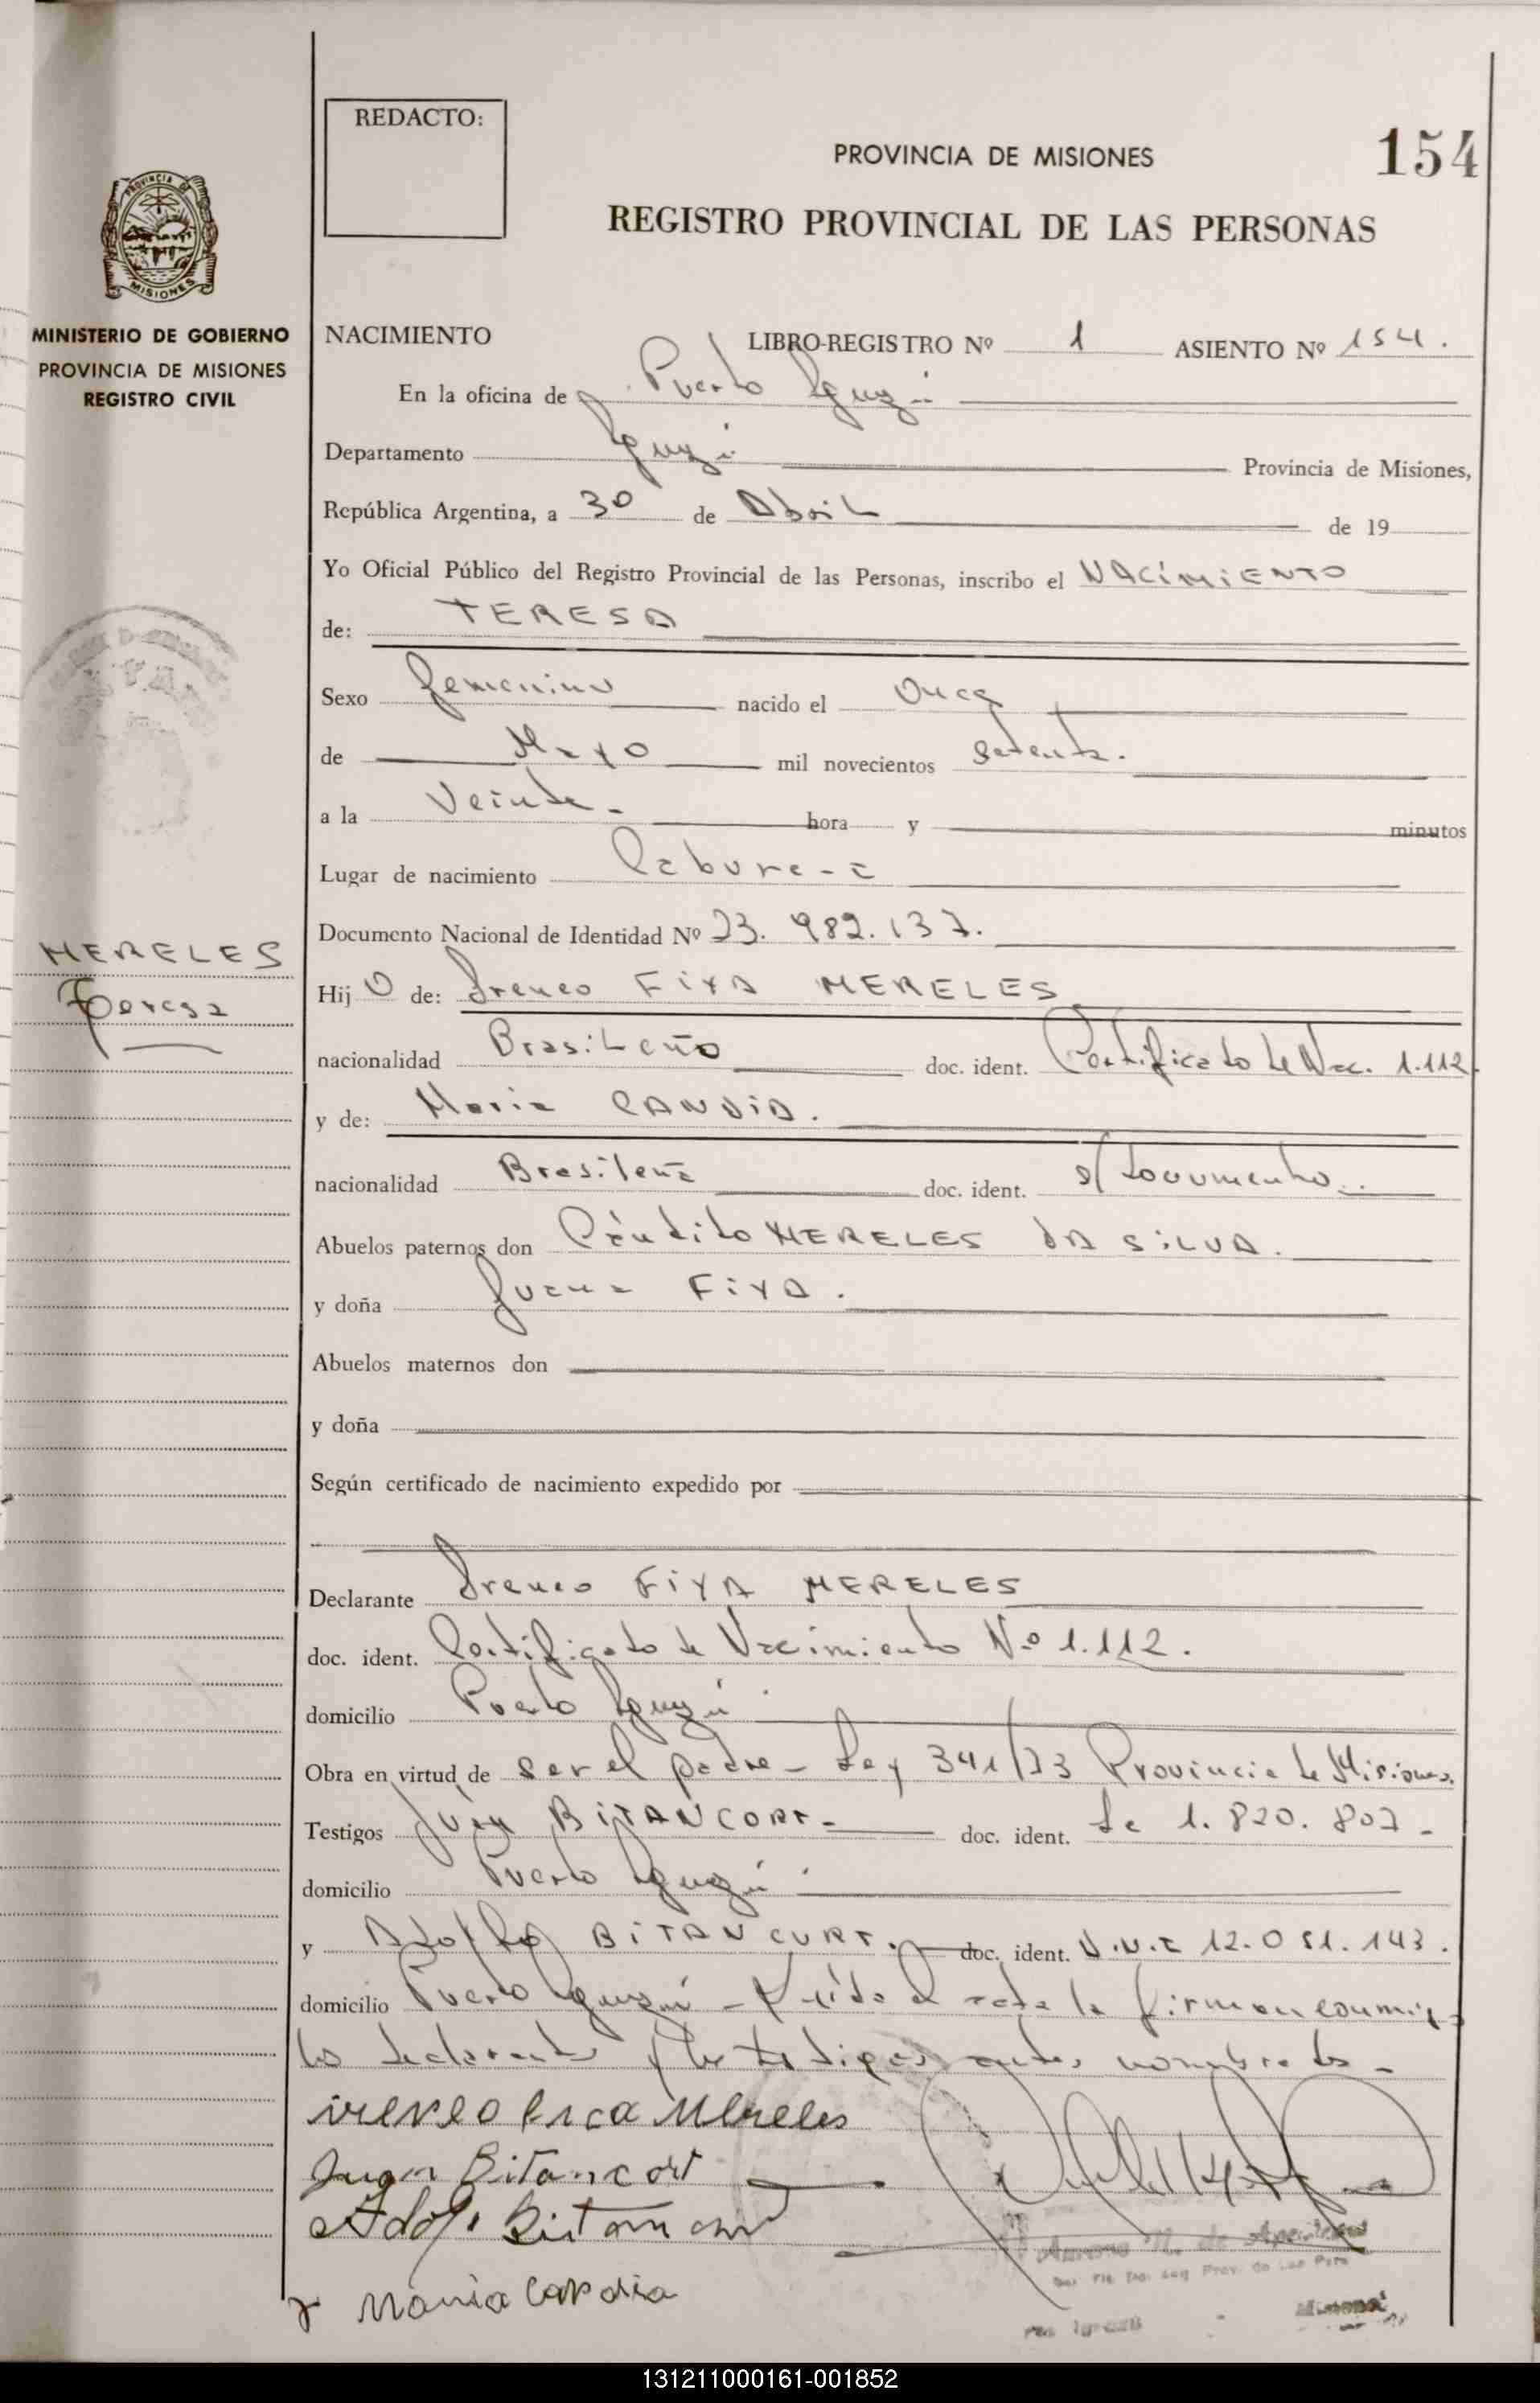 REDACTO:
PROVINCIA DE MISIONES
154
REGISTRO PROVINCIAL DE LAS PERSONAS
PROVINCIA DE
MISIONES
MINISTERIO DE GOBIERNO
PROVINCIA DE MISIONES
REGISTRO CIVIL
NACIMIENTO LIBRO-REGISTRO Nº 1 ASIENTO Nº 154.
En la oficina de Puerto Iguazú
Departamento Iguazú Provincia de Misiones,
República Argentina, a 30 de Abril de 19
Yo Oficial Público del Registro Provincial de las Personas, inscribo el NACIMIENTO
de: TERESA
Sexo femenino nacido el Once
de Mayo mil novecientos setenta.
a la Veinte - hora y minutos
Lugar de nacimiento Cabure-í
Documento Nacional de Identidad Nº 23.982.137.
MERELES
Teresa
Hij O de: Ireneo FIXA MERELES
nacionalidad Brasileño doc. ident. Certificado de Nac. 1.112
y de: Maria CANDIA.
nacionalidad Brasileña doc. ident. s/ documento..
Abuelos paternos don Cándido MERELES DA SILVA.
y doña Juana FIXA.
Abuelos maternos don
y doña
Según certificado de nacimiento expedido por
Declarante Ireneo FIXA MERELES
doc. ident. Certificado de Nacimiento Nº 1.112.
domicilio Puerto Iguazú
Obra en virtud de ser el padre - Ley 341/73 Provincia de Misiones.
Testigos Juan BITANCORT - doc. ident. Le 1.820.807 -
domicilio Puerto Iguazú
y Adolfo BITANCURT. doc. ident. D.N.I 12.081.143.
domicilio Puerto Iguazú - Leída el acta la firman conmigo
los declarantes y los testigos antes nombrados -
ireneo fica Mereles
Juan Bitancort
Adolfo
María Candia
131211000161-001852